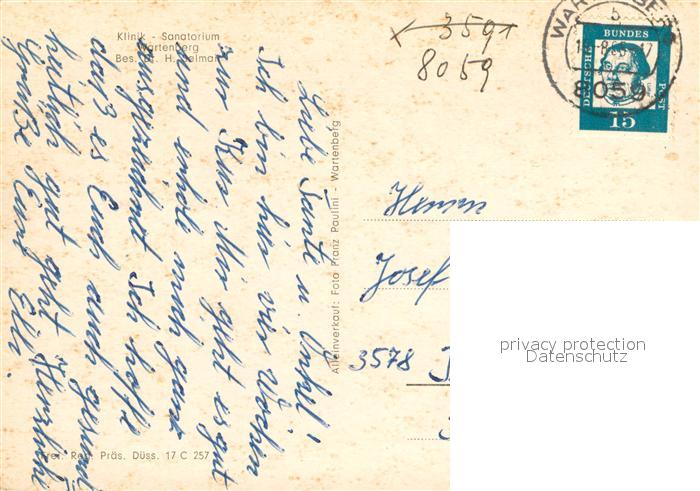 Klinik - Sanatorium
Wartenberg
Bes. Dr. H. Selmair
Liebe Tante u. Onkel!
Ich bin hier vier Wochen
zur Kur. Mir geht es gut
und erhole mich ganz
ausgezeichnet. Ich hoffe
daß es Euch auch gesund-
heitlich gut geht. Herzliche
Grüße Eure Elli.
Alleinverkauf: Foto Franz Paulini - Wartenberg
Frei: Reg. Präs. Düss. 17 C 257
3591
8059
8059
DEUTSCHE
BUNDES
POST
15
Herrn
Josef
3578
privacy protection
Datenschutz